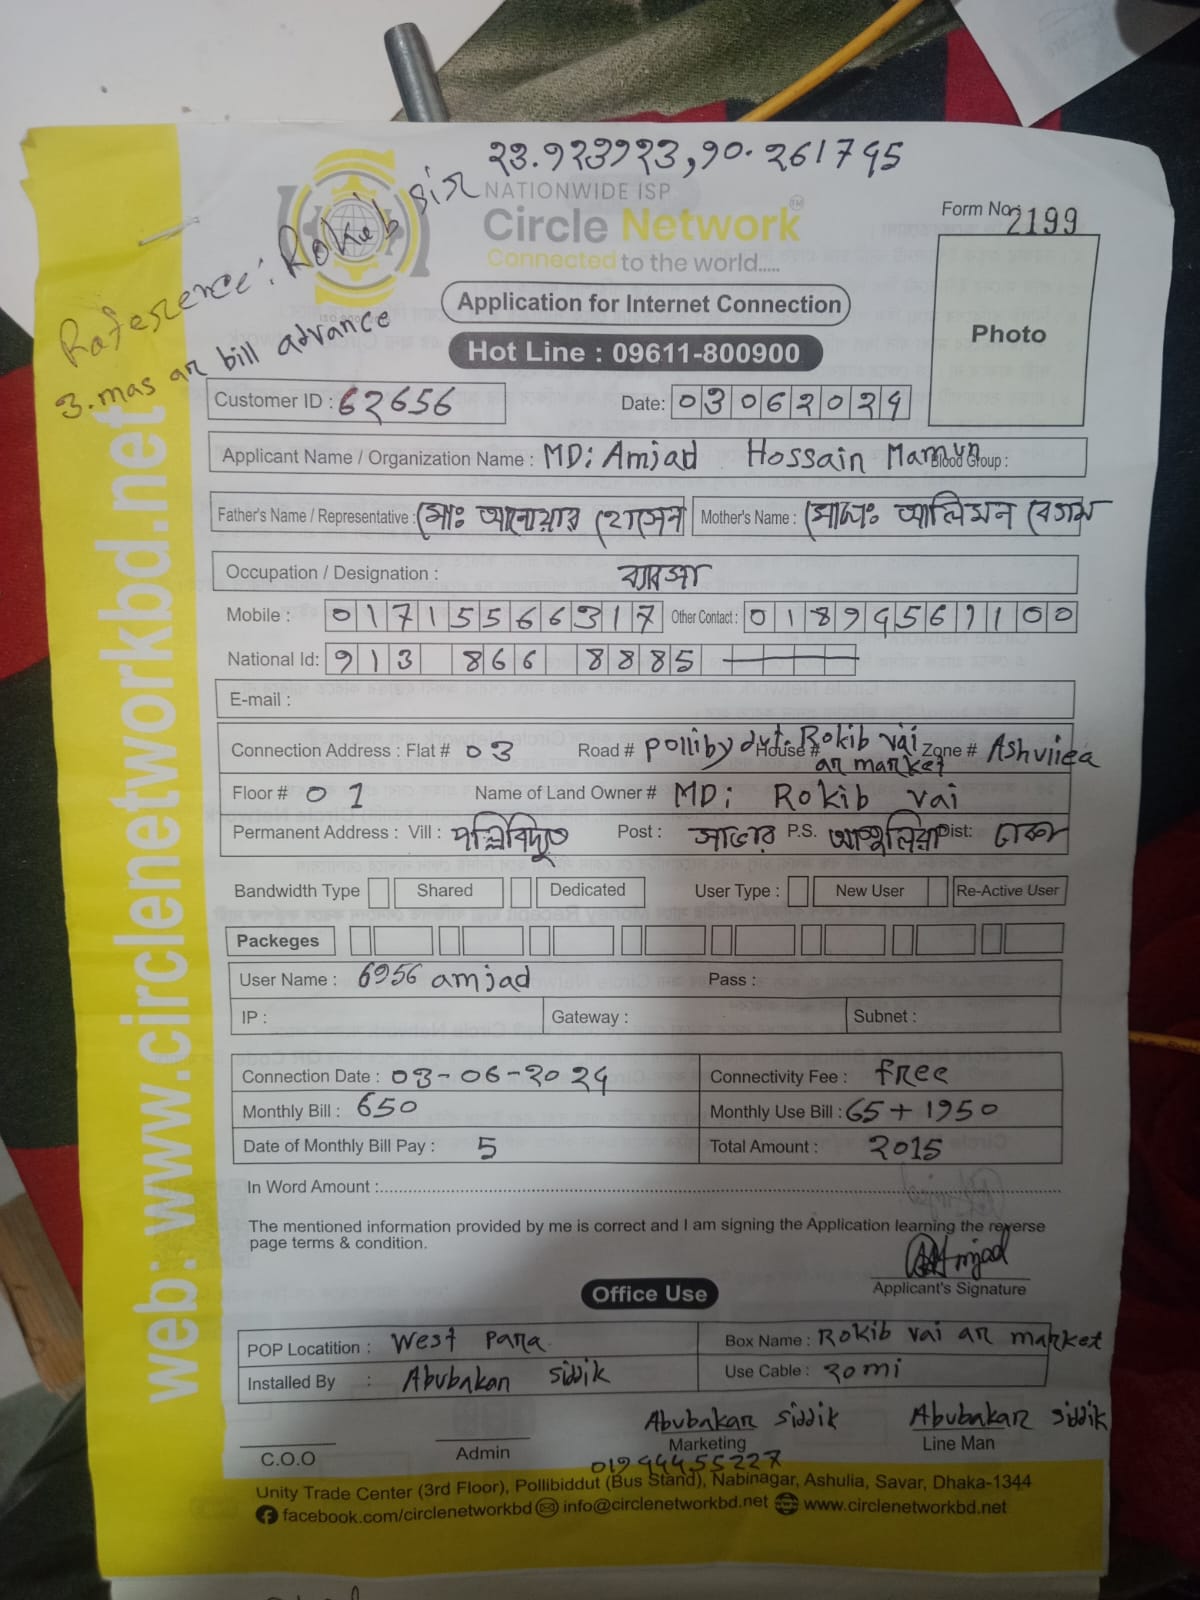 23.923923,90.261795
NATIONWIDE ISP
Circle Network
Connected to the world.....
Form No: 2199
Reference: Rokib sir
3.mas ar bill advance
Photo
Application for Internet Connection
Hot Line : 09611-800900
Customer ID : 62656
Date: 03062024
Applicant Name / Organization Name : MD: Amjad Hossain Mamun Blood Group :
Father's Name / Representative : মোঃ আনোয়ার হোসেন Mother's Name : মোছাঃ আলিমন বেগম
Occupation / Designation : ব্যবসা
Mobile : 01715566317 Other Contact : 01894561100
National Id: 913 866 8885
E-mail :
Connection Address : Flat # 03 Road # polliby dut. House # Rokib vai ar market Zone # Ashuliea
Floor # 01 Name of Land Owner # MD: Rokib vai
Permanent Address : Vill : পল্লিবিদ্যুত Post : সাভার P.S. আশুলিয়া Dist: ঢাকা
Bandwidth Type Shared Dedicated User Type : New User Re-Active User
Packeges
User Name : 6956 amjad Pass :
IP : Gateway : Subnet :
Connection Date : 03-06-2024 Connectivity Fee : free
Monthly Bill : 650 Monthly Use Bill : 65 + 1950
Date of Monthly Bill Pay : 5 Total Amount : 2015
In Word Amount :
The mentioned information provided by me is correct and I am signing the Application learning the reverse
page terms & condition.
Amjad
Applicant's Signature
Office Use
POP Locatition : West Para Box Name : Rokib vai ar market
Installed By : Abubakar siddik Use Cable : 20mi
Abubakar siddik Abubakar siddik
C.O.O Admin Marketing Line Man
01944455227
Unity Trade Center (3rd Floor), Pollibiddut (Bus Stand), Nabinagar, Ashulia, Savar, Dhaka-1344
facebook.com/circlenetworkbd info@circlenetworkbd.net www.circlenetworkbd.net
web: www.circlenetworkbd.net